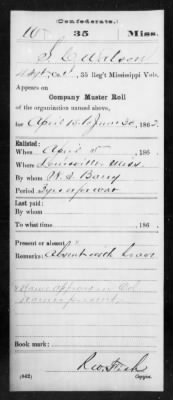 (Confederate.)
35 Miss.
Watson
35 Reg't Mississippi Vols.
Appears on
Company Muster Roll
of the organization named above,
for April 15 to June 30, 1862.
Enlisted:
When April 5, 186 .
Where Louisville Miss
By whom W. S. Barry
Period 3 yrs or war
Last paid:
By whom
To what time , 186 .
Present or absent
Remarks: Absent with leave
Name appears in Col.
Names present
Book mark:
(642) Copyist.